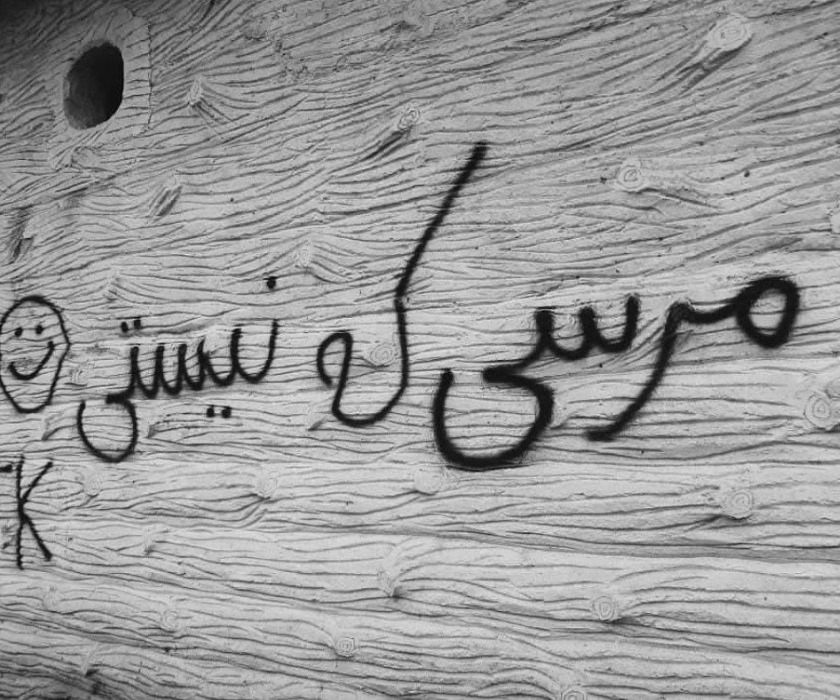 مرسی که نیستی
K